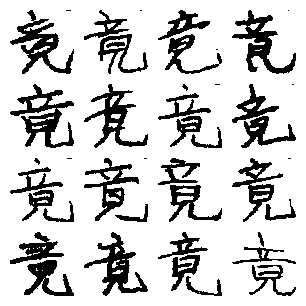 竟竟竟竟
竟竟竟竟
竟竟竟竟
竟竟竟竟